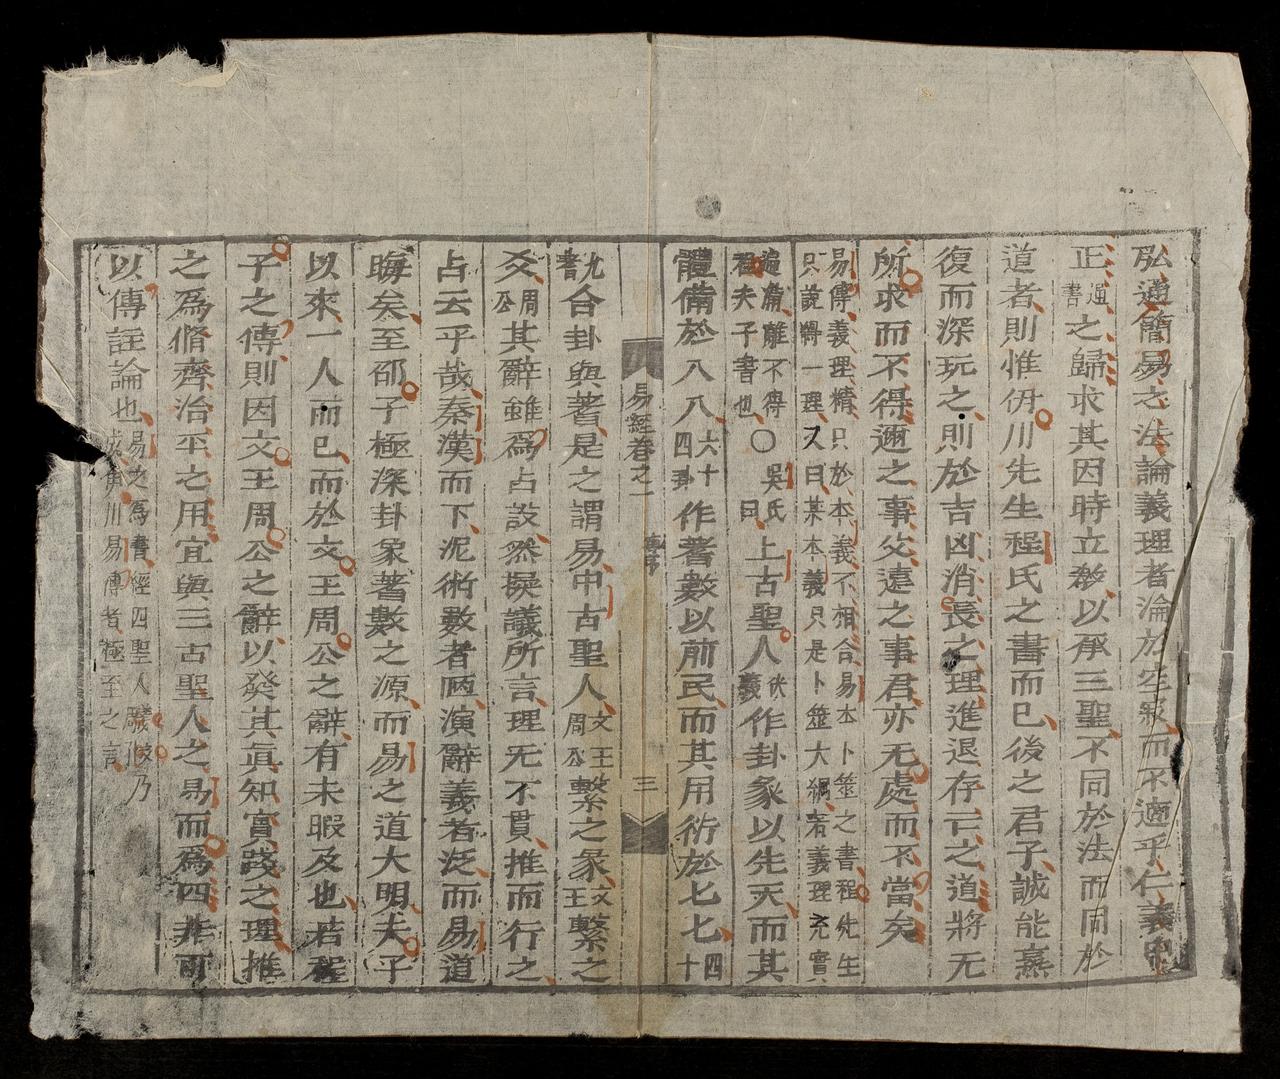 弘通簡易之法論義理者淪於空寂而不適乎仁義中
正通書之歸求其因時立教以承三聖不同於法而同於
道者則惟伊川先生程氏之書而已後之君子誠能熹
復而深玩之則於吉凶消長之理進退存亡之道將无
所求而不得邇之事父遠之事君亦无處而不當矣
易傳義理精只於本義不相合易本卜筮之書程先生
只說得一理又曰某本義只是卜筮大綱若義理充實
遍滿離不得
程夫子書也〇吳氏曰上古聖人伏義作卦象以先天而其
體備於八八六十四卦作蓍數以前民而其用衍於七七四十
易經卷之一
三
九蓍合卦與蓍是之謂易中古聖人文王周公繫之彖文王繫之
爻周公其辭雖爲占設然擬議所言理无不貫推而行之
占云乎哉秦漢而下泥術數者陋演辭義者泛而易道
晦矣至邵子極深卦象蓍數之源而易之道大明夫子
以來一人而已而於文王周公之辭有未暇及也若程
子之傳則因文王周公之辭以發其眞知實踐之理推
之爲脩齊治平之用宜與三古聖人之易而爲四非可
以傳註論也易之爲書經四聖人乃
川易傳者極至之言